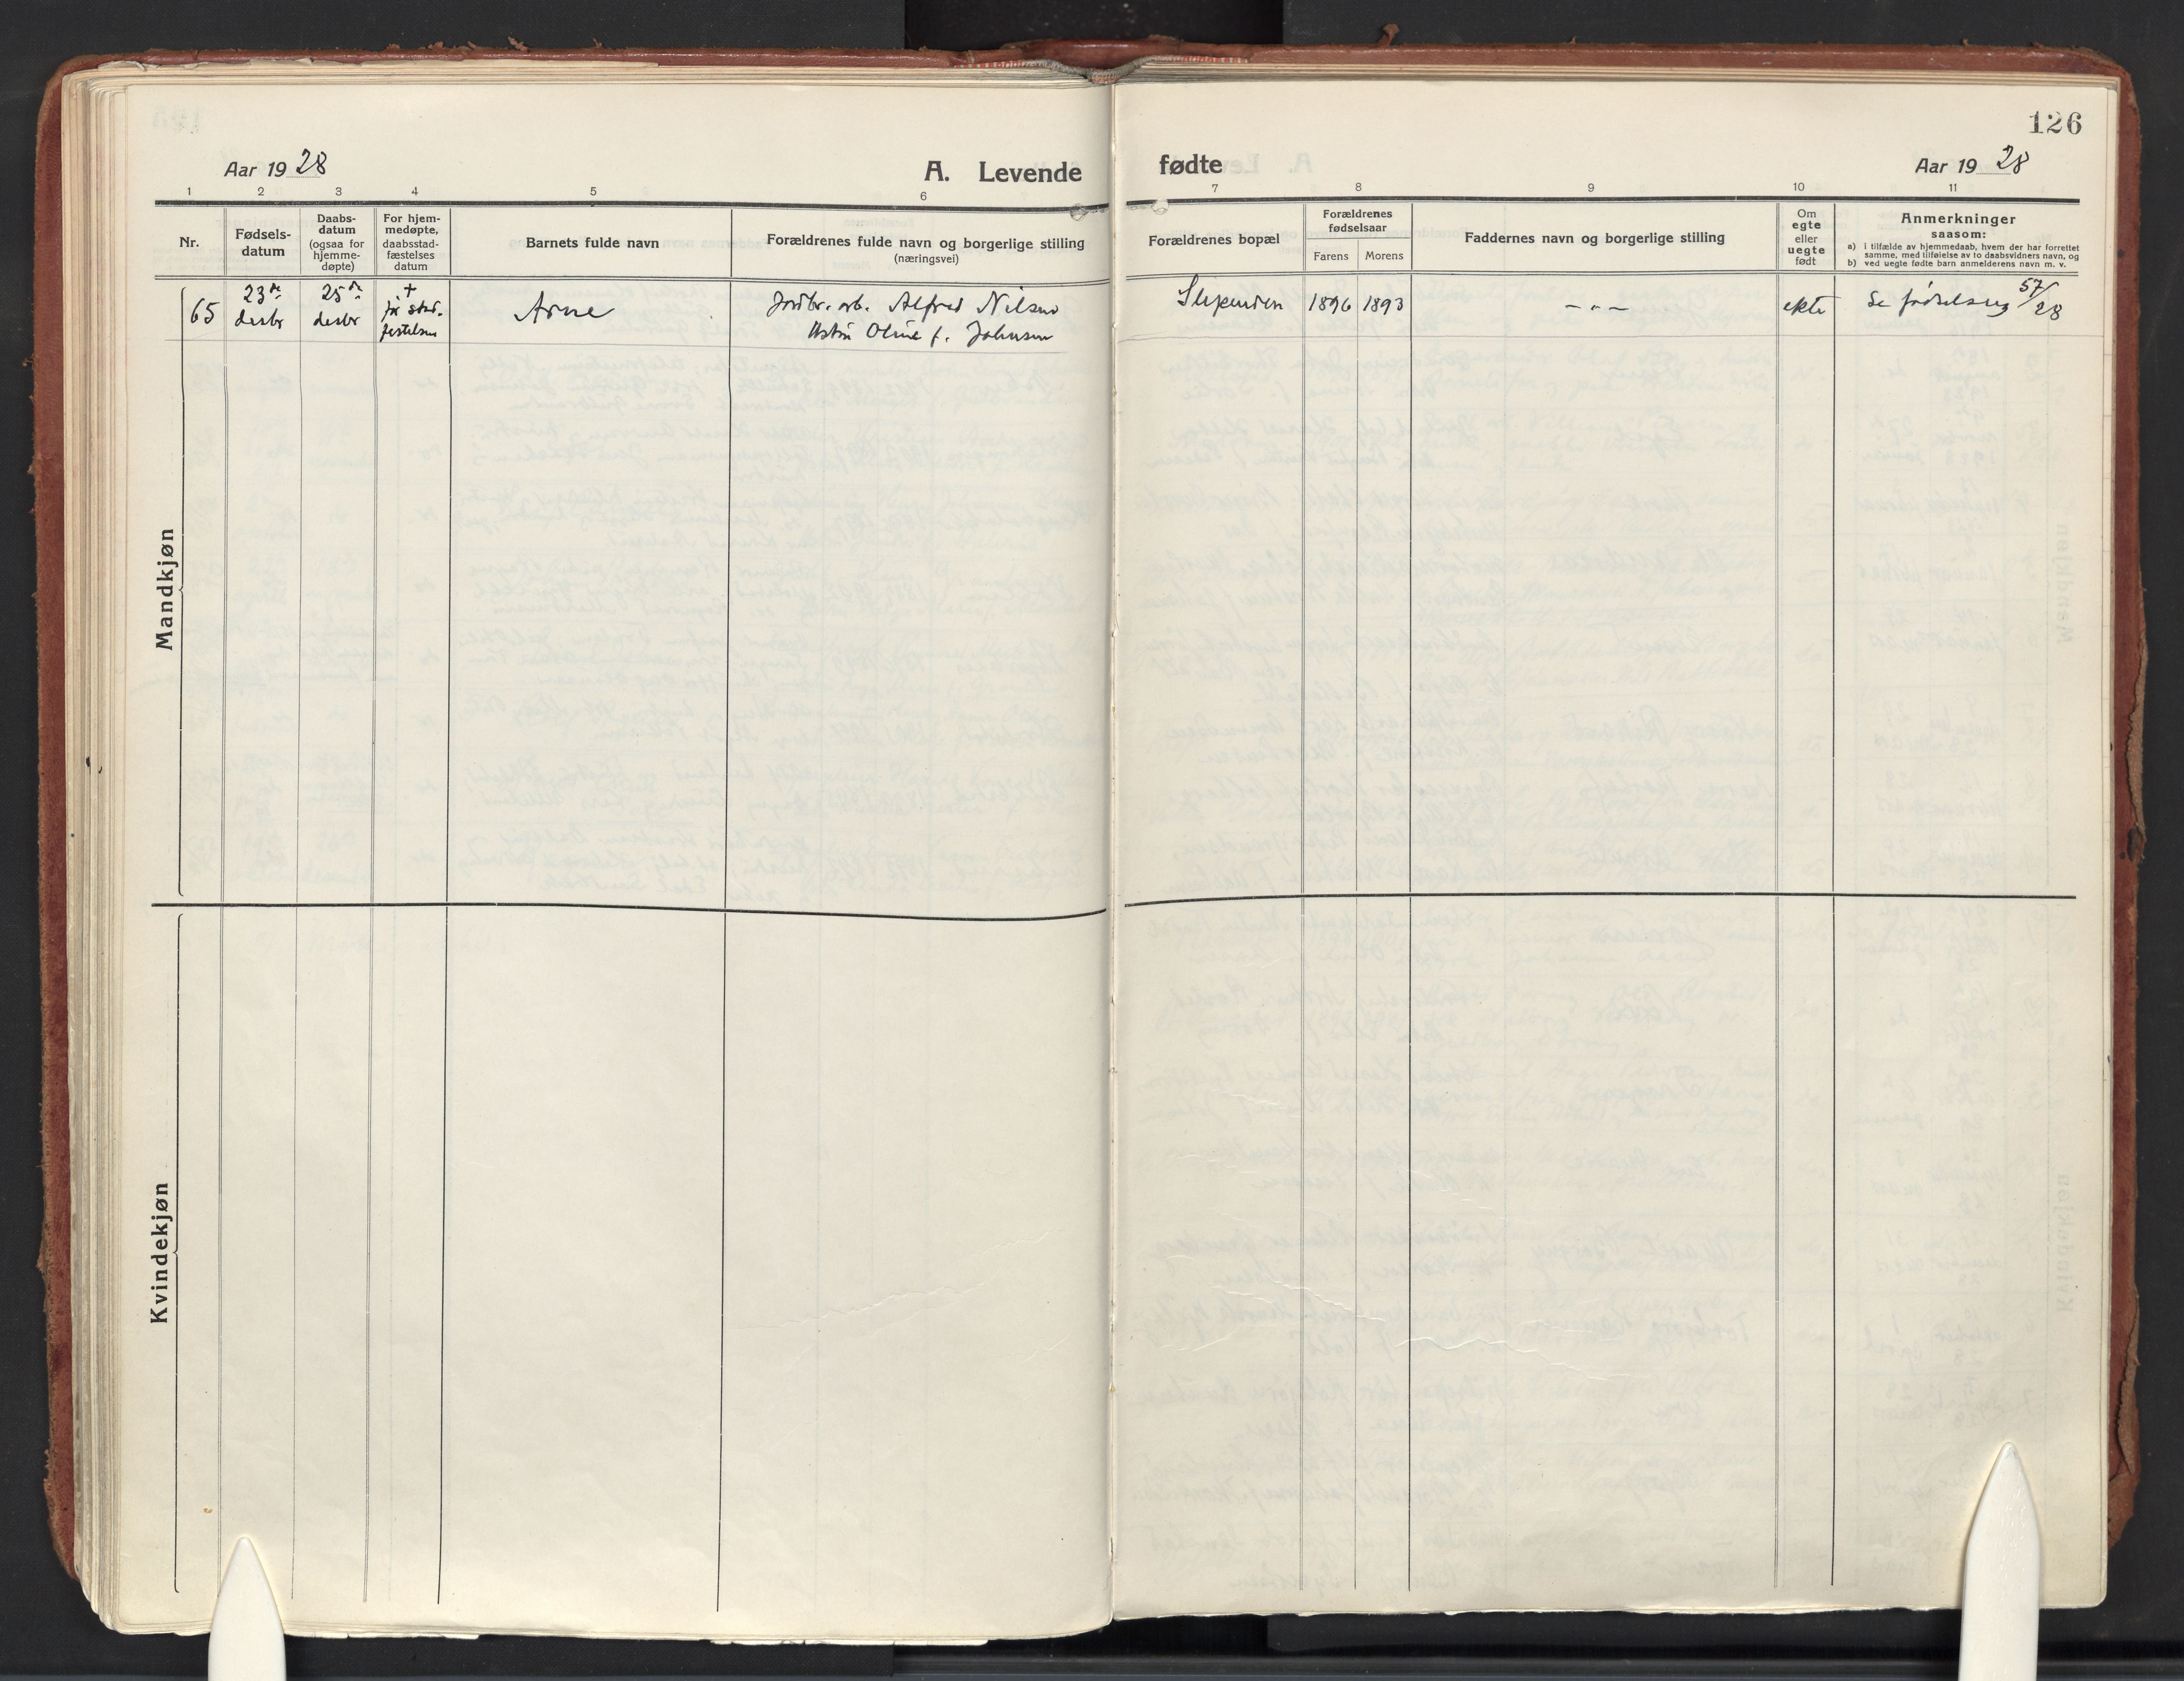 126
Aar 1928
A. Levende fødte
Aar 1928
1 2 3 4 5 6 7 8 9 10 11
Nr.
Fødsels-
datum
Daabs-
datum
(ogsaa for
hjemme-
døpte)
For hjem-
medøpte,
daabsstad-
fæstelses
datum
Barnets fulde navn
Forældrenes fulde navn og borgerlige stilling
(næringsvei)
Forældrenes bopæl
Forældrenes
fødselsaar
Farens Morens
Faddernes navn og borgerlige stilling
Om
egte
eller
uegte
født
Anmerkninger
saasom:
a) i tilfælde av hjemmedaab, hvem der har forrettet
samme, med tilføielse av to daabsvidners navn, og
b) ved uegte fødte barn anmelderens navn m. v.
Mandkjøn
65
23de
desbr
25de
desbr
†
før stad.
festelsen
Arne
Jordbr. arb. Alfred Nilsen
Oline f. Johnsen
Slependen
1896 1893
– " –
ekte
Se fødselsreg 57/28
Kvindekjøn